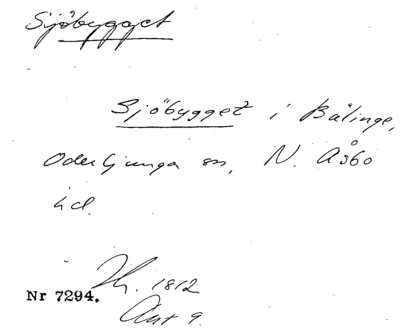 Sjöbygget
Sjöbygget i Bälinge,
Oderljunga sn, N. Åsbo
hd.
1812
Nr 7294.
Ant 9.